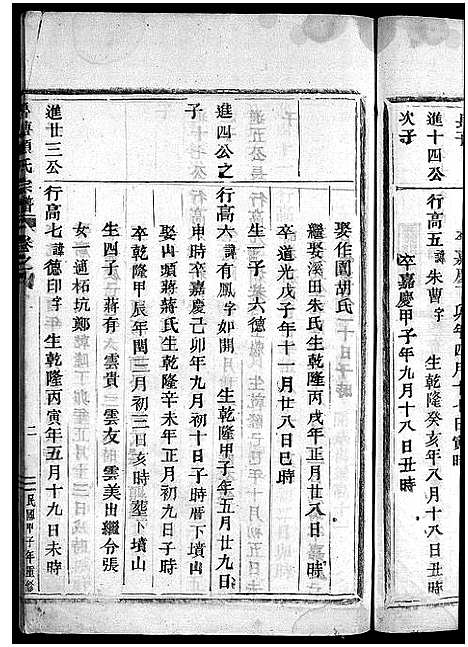 長子
進十四公 行高五 諱朱曹字 生乾隆癸亥年八月十八日丑時
次子 卒嘉慶甲子年九月十八日丑時
娶作圊胡氏
繼娶溪田朱氏生乾隆丙戌年十二月廿八日 時
卒道光戊子年十一月廿八日巳時
生一子 大德
進四公之子 行高六 諱有鳳字如開 生乾隆甲子年五月廿九日
申時卒嘉慶己卯年九月初十日子時厝下墳山
娶山頭蔣蔣氏生乾隆辛未年正月初九日子時
卒乾隆甲辰年閏三月初三日亥時 塟下墳山
生四子 蔣有 大雲貴 三雲友 四雲美出繼分張
女一適柘坑鄭
進廿三公 行高七 諱德印字 生乾隆丙寅年五月十九日未時
項氏宗譜 卷之
二
民國甲子年重修